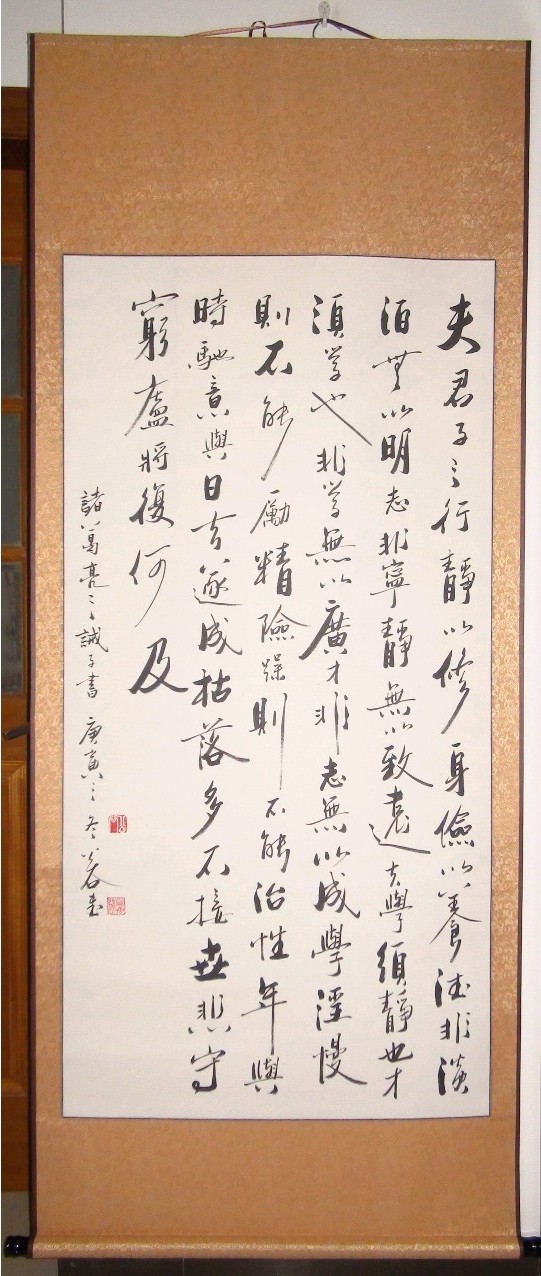 夫君子之行靜以修身儉以養德非淡
泊無以明志非寧靜無以致遠夫學須靜也才
須學也非學無以廣才非志無以成學淫慢
則不能勵精險躁則不能治性年與
時馳意與日去遂成枯落多不接世悲守
窮廬將復何及
諸葛亮之誡子書 庚寅之冬 書